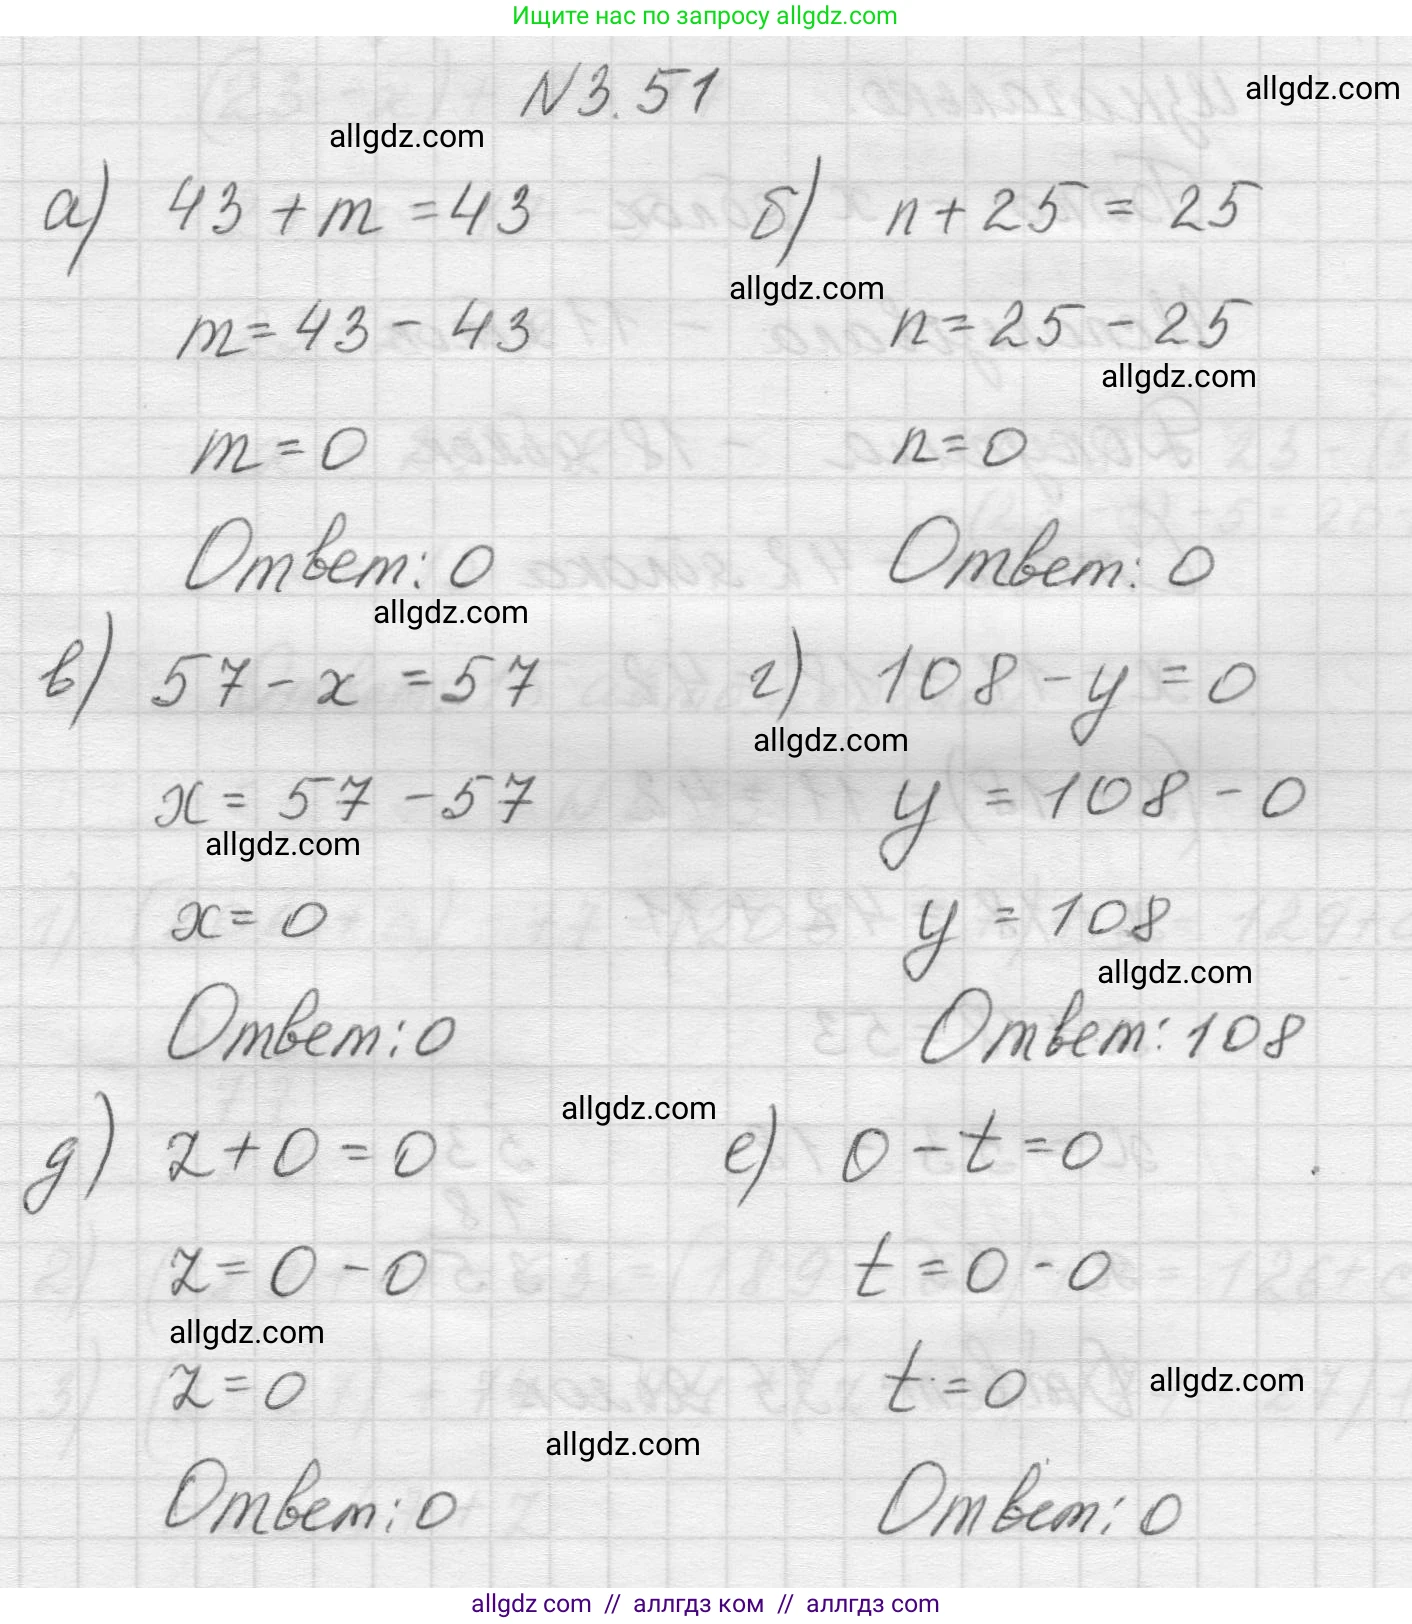 Ищите нас по запросу allgdz.com
N 3.51
allgdz.com
allgdz.com
а) 43 + m = 43
б) n + 25 = 25
allgdz.com
m = 43 - 43
n = 25 - 25
allgdz.com
m = 0
n = 0
Ответ: 0
Ответ: 0
allgdz.com
в) 57 - x = 57
г) 108 - y = 0
allgdz.com
x = 57 - 57
y = 108 - 0
allgdz.com
x = 0
y = 108
allgdz.com
Ответ: 0
Ответ: 108
allgdz.com
д) z + 0 = 0
е) 0 - t = 0
z = 0 - 0
t = 0 - 0
allgdz.com
z = 0
t = 0
allgdz.com
allgdz.com
Ответ: 0
Ответ: 0
allgdz.com // аллгдз ком // аллгдз com